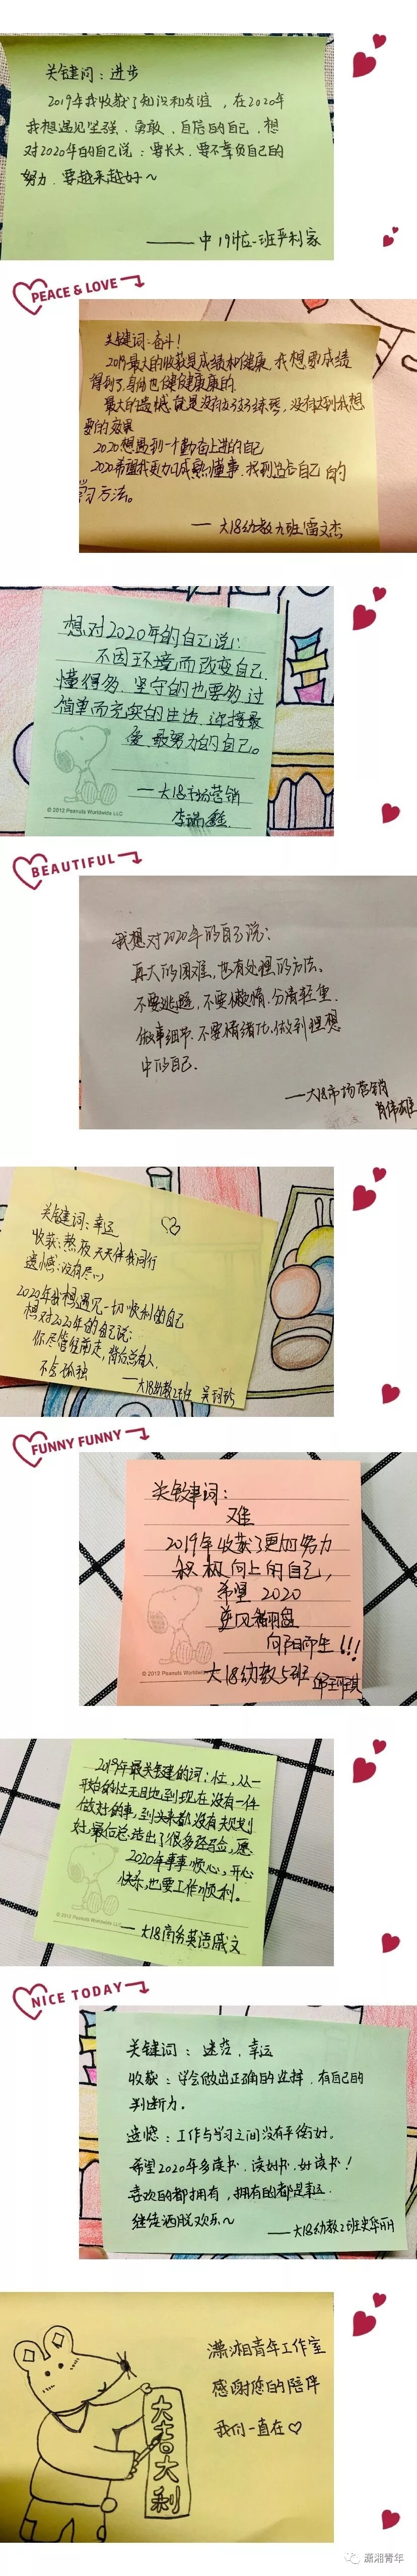 关键词：进步
2019年我收获了知识和友谊，在2020年
我想遇见坚强、勇敢、自信的自己，想
对2020年的自己说：要长大，要不辜负自己的
努力，要越来越好～
PEACE & LOVE
关键词：奋斗！
2019最大的收获是成绩和健康，我想要成绩
得到了，身体也健健康康的
最大的遗憾就是没有好好练琴，没有达到我想
要的效果
2020想遇到一个勤奋上进的自己
2020希望我更加成熟懂事，找到适合自己的
学习方法。
— 大18幼教九班雷文杰
想对2020年的自己说：
不因环境而改变自己
懂得多，坚守的也要多，过
简单而充实的生活，迎接最
最努力的自己。
© 2012 Peanuts Worldwide LLC
—大18市场营销
李瑞鑫
BEAUTIFUL
我想对2020年的自己说：
再大的困难，也有处理的方法。
不要逃避，不要懒惰，分清轻重.
做事细节，不要情绪化，做到理想
中的自己.
—大18市场营销
肖伟雄
关键词：幸运
收获：热夜天天伴我同行
遗憾：没有尽心
2020年我想遇见一切顺利的自己
想对2020年的自己说：
你尽管往前走，背后总有人，
不会孤独
FUNNY FUNNY
难
2019年收获了更加努力
积极向上的自己，
希望 2020
逆风翻盘
向阳而生!!!
© 2012 Peanuts Worldwide
大18幼教5班
2019年最关键的词：忙，从一
开始的忙无目地，到现在没有一件
做好的事，到头来都没有规划
好，最后总结出了很多经验，愿
2020年事事顺心，开心
快乐，也要工作顺利。
© 2012 Peanuts Worldwide LLC
—大18商务英语
NICE TODAY
关键词：迷茫、幸运
收获：学会做出正确的选择，有自己的
判断力。
遗憾：工作与学习之间没有平衡好。
希望2020年多读书，读好书，好读书！
喜欢的都拥有，拥有的都是幸运
继续洒脱欢乐～
——大18幼教2班史华丽
大吉大利
潇湘青年工作室
感谢您的陪伴
我们一直在♡
潇湘青年